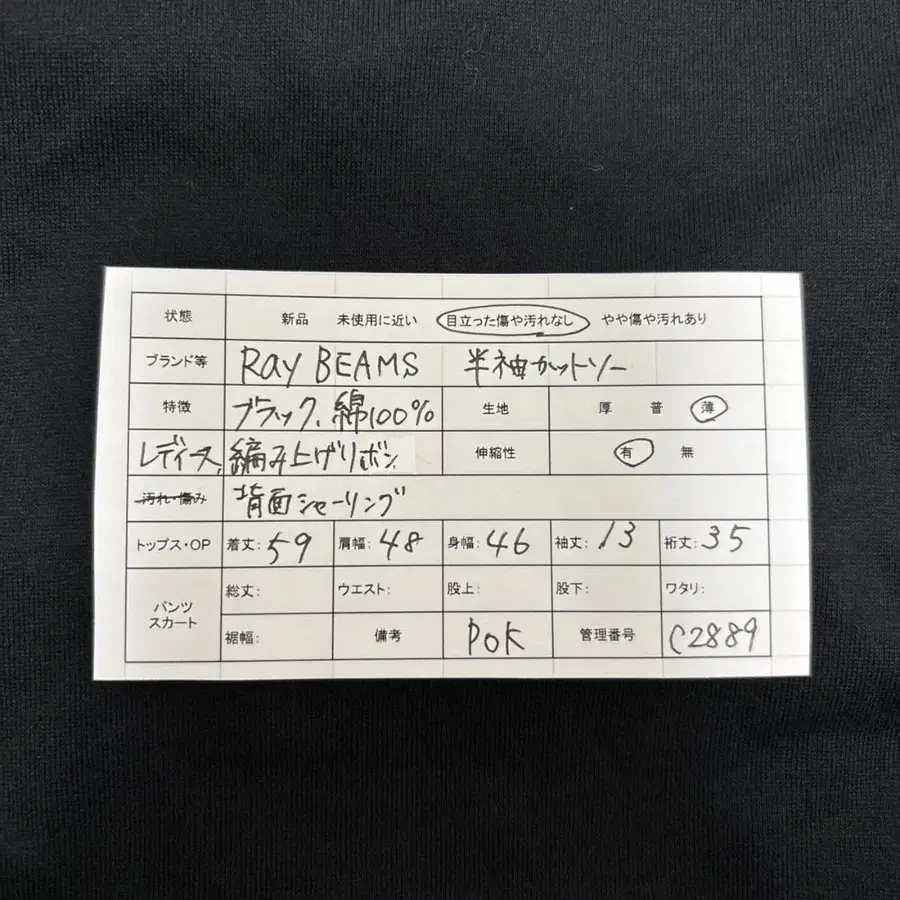 状態 新品 未使用に近い 目立った傷や汚れなし やや傷や汚れあり
ブランド等 Ray BEAMS 半袖カットソー
特徴 ブラック、綿100% 生地 厚 普 薄
レディース、編み上げリボン 伸縮性 有 無
汚れ・傷み 背面シャーリング
トップス・OP 着丈:59 肩幅:48 身幅:46 袖丈:13 裄丈:35
パンツ スカート 総丈: ウエスト: 股上: 股下: ワタリ:
裾幅: 備考 POK 管理番号 C2889